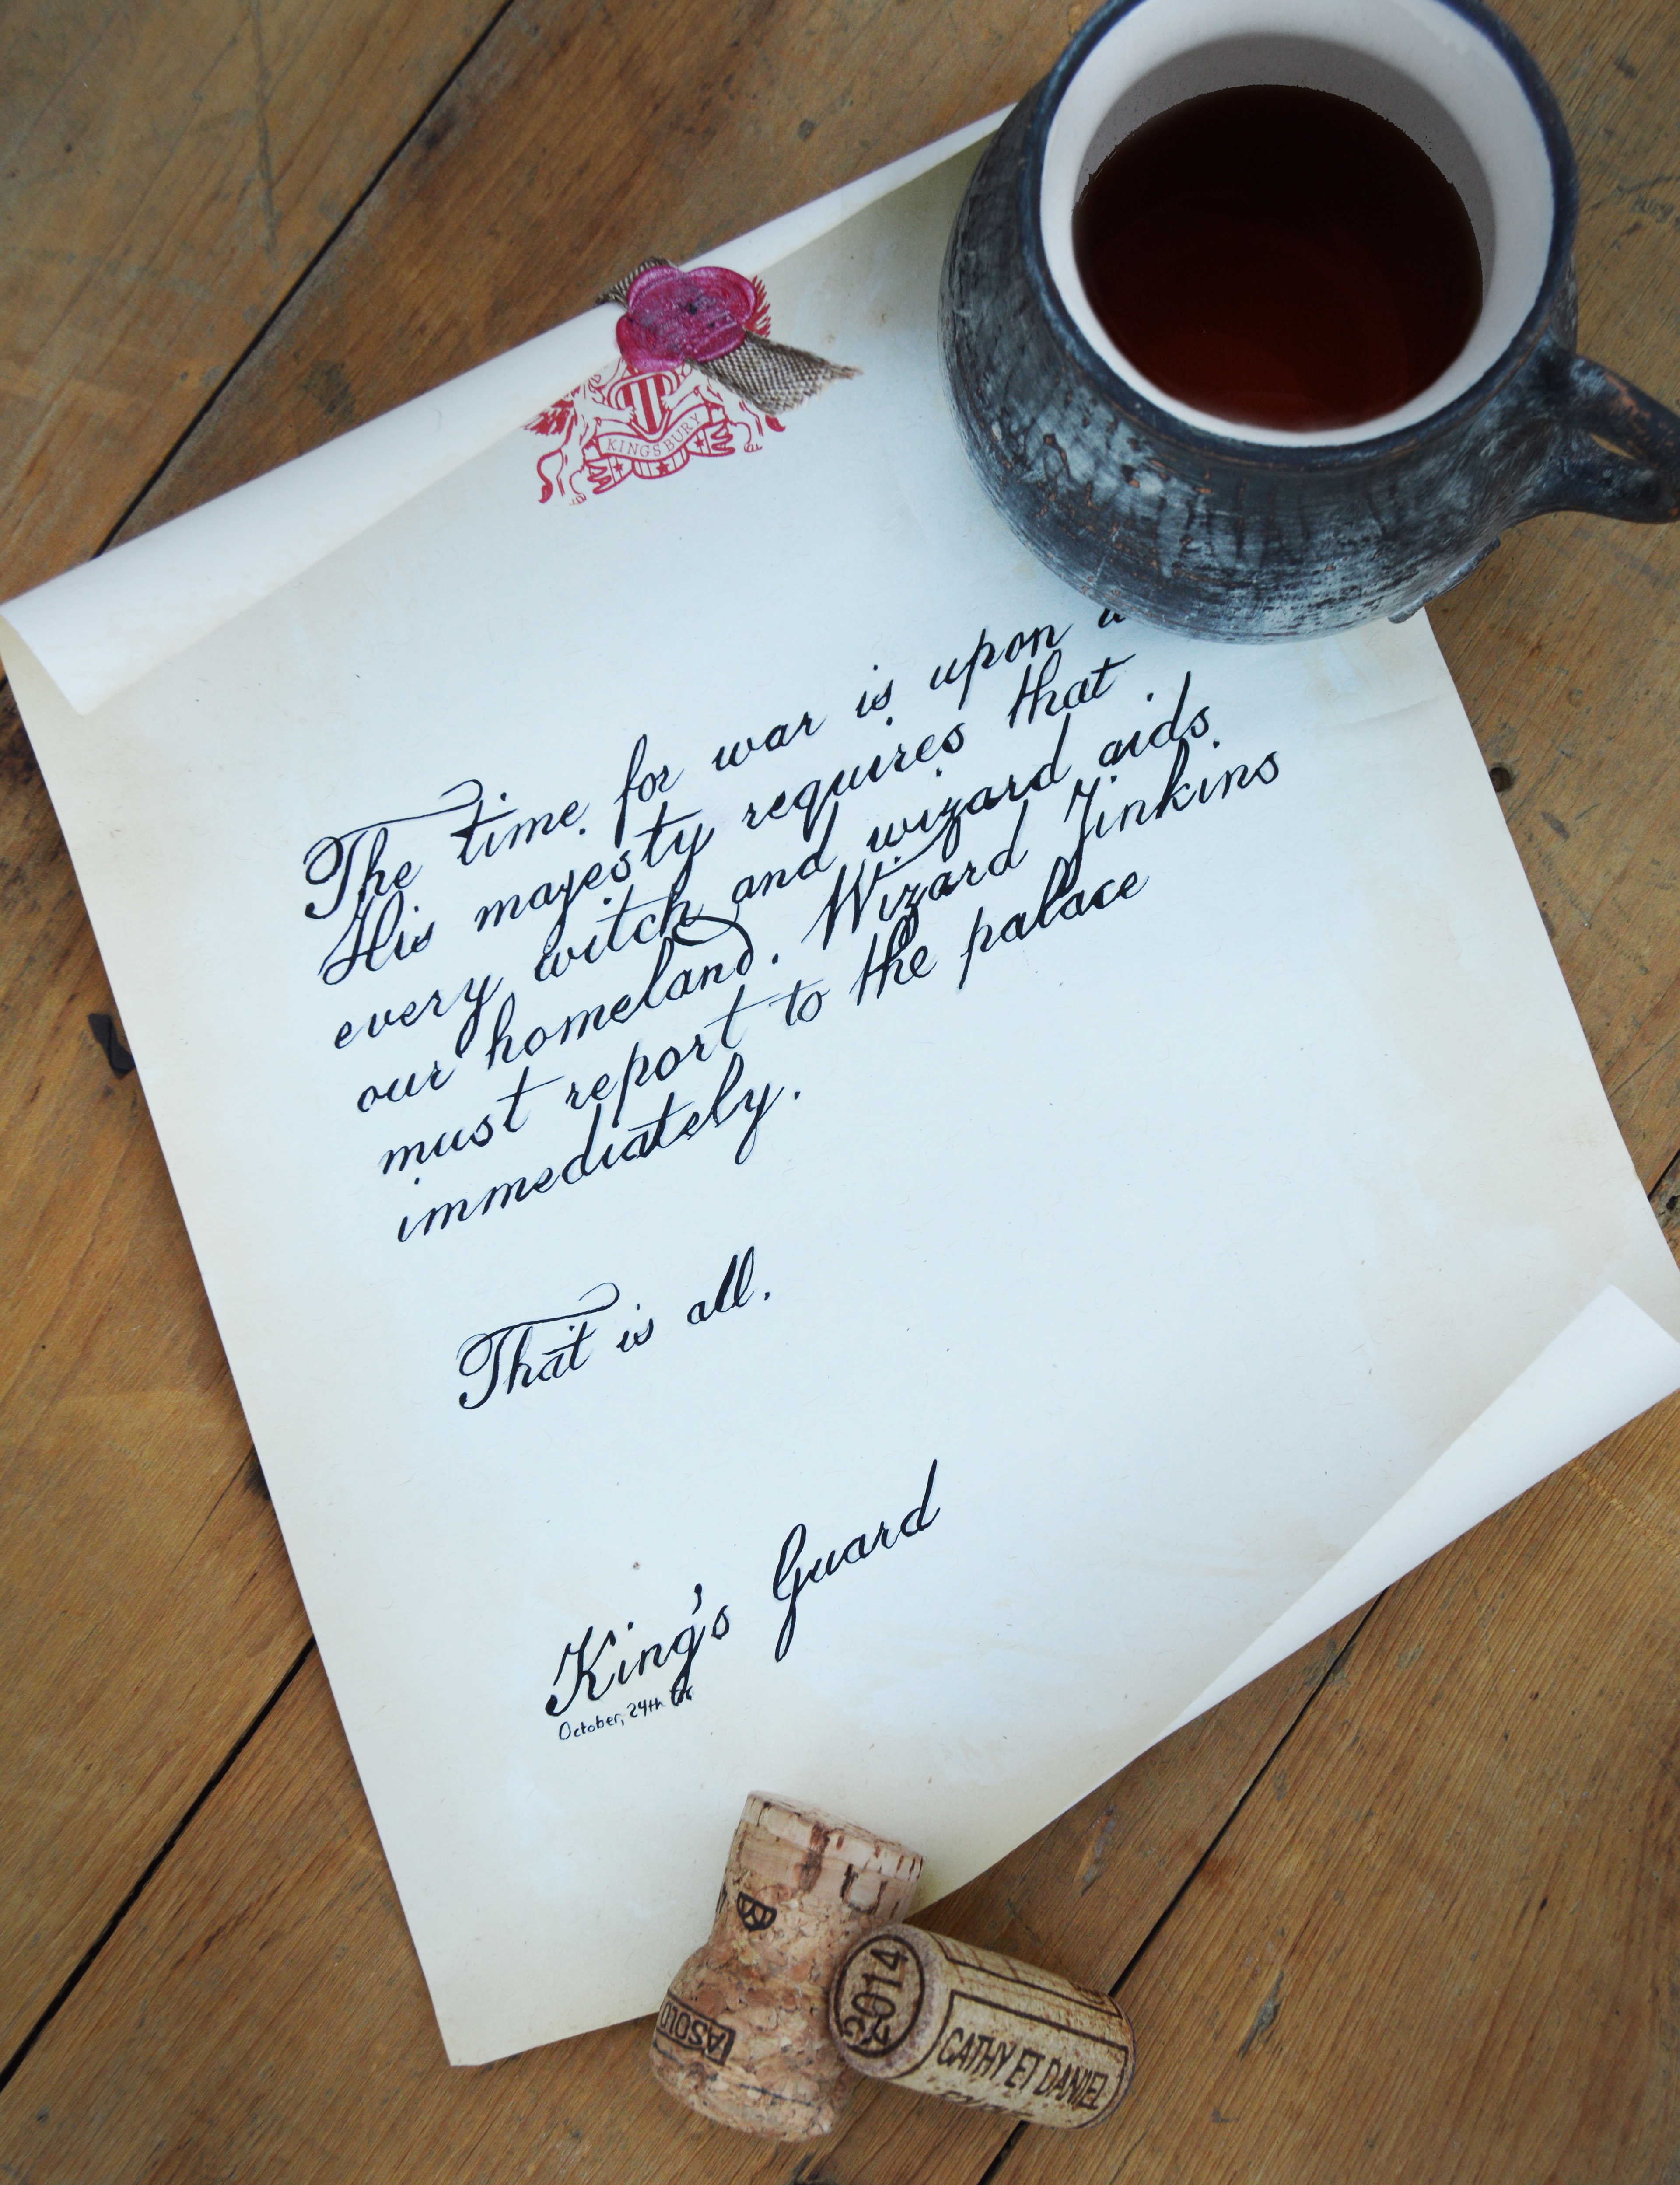 KINGSBURY
The time for war is upon
His majesty requires that
every witch and wizard aids
our homeland. Wizard Jinkins
must report to the palace
immediately.
That is all.
King's Guard
October, 24th
ASOLO
2014
CATHY ET DANIEL